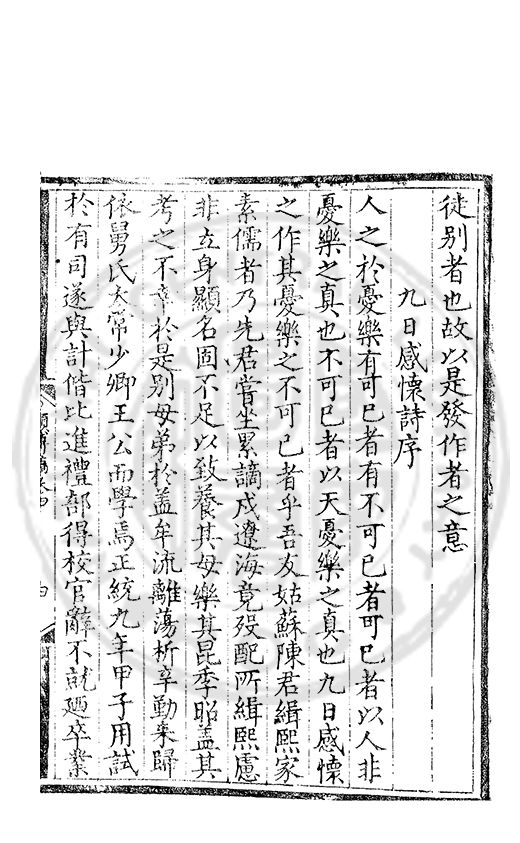 徒别者也故以是發作者之意
九日感懷詩序
人之於憂樂有可已者有不可已者可已者以人非
憂樂之真也不可已者以天憂樂之真也九日感懷
之作其憂樂之不可已者乎吾友姑蘇陳君緝熙家
素儒者乃先君嘗坐累謫戍遼海竟殁配所緝熙慮
非立身顯名固不足以致養其母樂其昆季昭盖其
考之不幸於是别母弟於盖牟流離蕩析辛勤来歸
依舅氏太常少卿王公而學焉正統九年甲子用試
於有司遂與計偕比進禮部得校官辭不就廼卒業